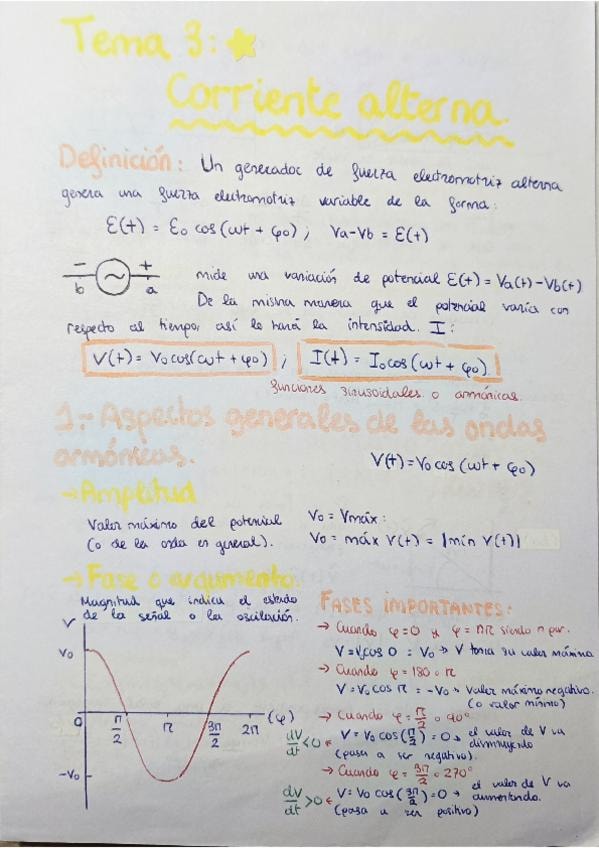 Tema 3:
Corriente alterna.
Definición: Un generador de fuerza electromotriz alterna
genera una fuerza electromotriz variable de la forma:
ℰ(t) = ℰ₀ cos(ωt + φ₀) ; Va-Vb = ℰ(t)
− + mide una variación de potencial ℰ(t) = Va(t)-Vb(t)
b a De la misma manera que el potencial varía con
respecto al tiempo, así lo hará la intensidad. I:
V(t) = V₀cos(ωt + φ₀) ; I(t) = I₀cos(ωt + φ₀)
funciones sinusoidales o armónicas.
1.- Aspectos generales de las ondas
armónicas.
V(t) = V₀ cos (ωt + φ₀)
→ Amplitud
Valor máximo del potencial
(o de la onda en general).
V₀ = Vmáx:
V₀ = máx V(t) = |mín V(t)|
→ Fase o argumento:
Magnitud que indica el estado
de la señal o la oscilación.
V
V₀
0
π/2 π 3π/2 2π (φ)
-V₀
FASES IMPORTANTES:
→ Cuando φ=0 y φ = nπ siendo n par.
V = V₀cos 0 = V₀ → V toma su valor máximo
→ Cuando φ = 180 o π
V = V₀ cos π = -V₀ → valor máximo negativo.
(o valor mínimo)
→ Cuando φ = π/2 o 90°
dV/dt < 0 ← V = V₀ cos(π/2) = 0 → el valor de V va
disminuyendo
(pasa a ser negativo).
→ Cuando φ = 3π/2 o 270°
dV/dt > 0 ← V = V₀ cos(3π/2) = 0 → el valor de V va
aumentando.
(pasa a ser positivo)